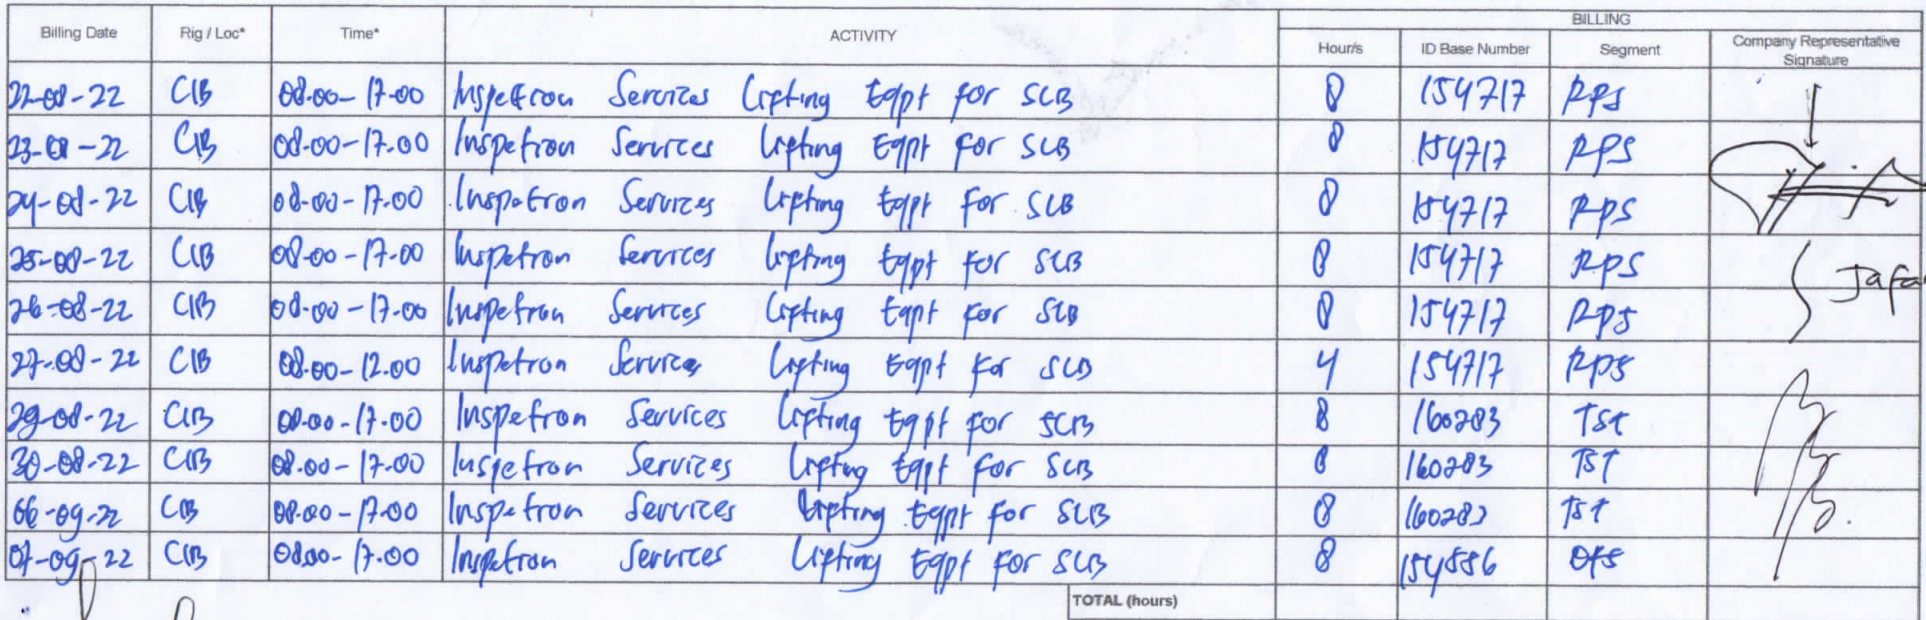 BILLING
Billing Date Rig / Loc* Time* ACTIVITY Hour/s ID Base Number Segment Company Representative Signature
22-08-22 CIB 08.00-17.00 Inspetion Services Lifting Eqpt for SLB 8 154717 RPS
23-08-22 CIB 08.00-17.00 Inspetion Services Lifting Eqpt for SLB 8 154717 RPS
24-08-22 CIB 08.00-17.00 Inspetion Services Lifting Eqpt for SLB 8 154717 RPS
25-08-22 CIB 08.00-17.00 Inspetion Services Lifting Eqpt for SLB 8 154717 RPS
Jafar
26-08-22 CIB 08.00-17.00 Inspetion Services Lifting Eqpt for SLB 8 154717 RPS
27-08-22 CIB 08.00-12.00 Inspetion Services Lifting Eqpt for SLB 4 154717 RPS
29-08-22 CIB 08.00-17.00 Inspetion Services Lifting Eqpt for SLB 8 160283 TST
30-08-22 CIB 08.00-17.00 Inspetion Services Lifting Eqpt for SLB 8 160283 TST
06-09-22 CIB 08.00-17.00 Inspetion Services Lifting Eqpt for SLB 8 160283 TST
07-09-22 CIB 08.00-17.00 Inspetion Services Lifting Eqpt for SLB 8 154886
TOTAL (hours)